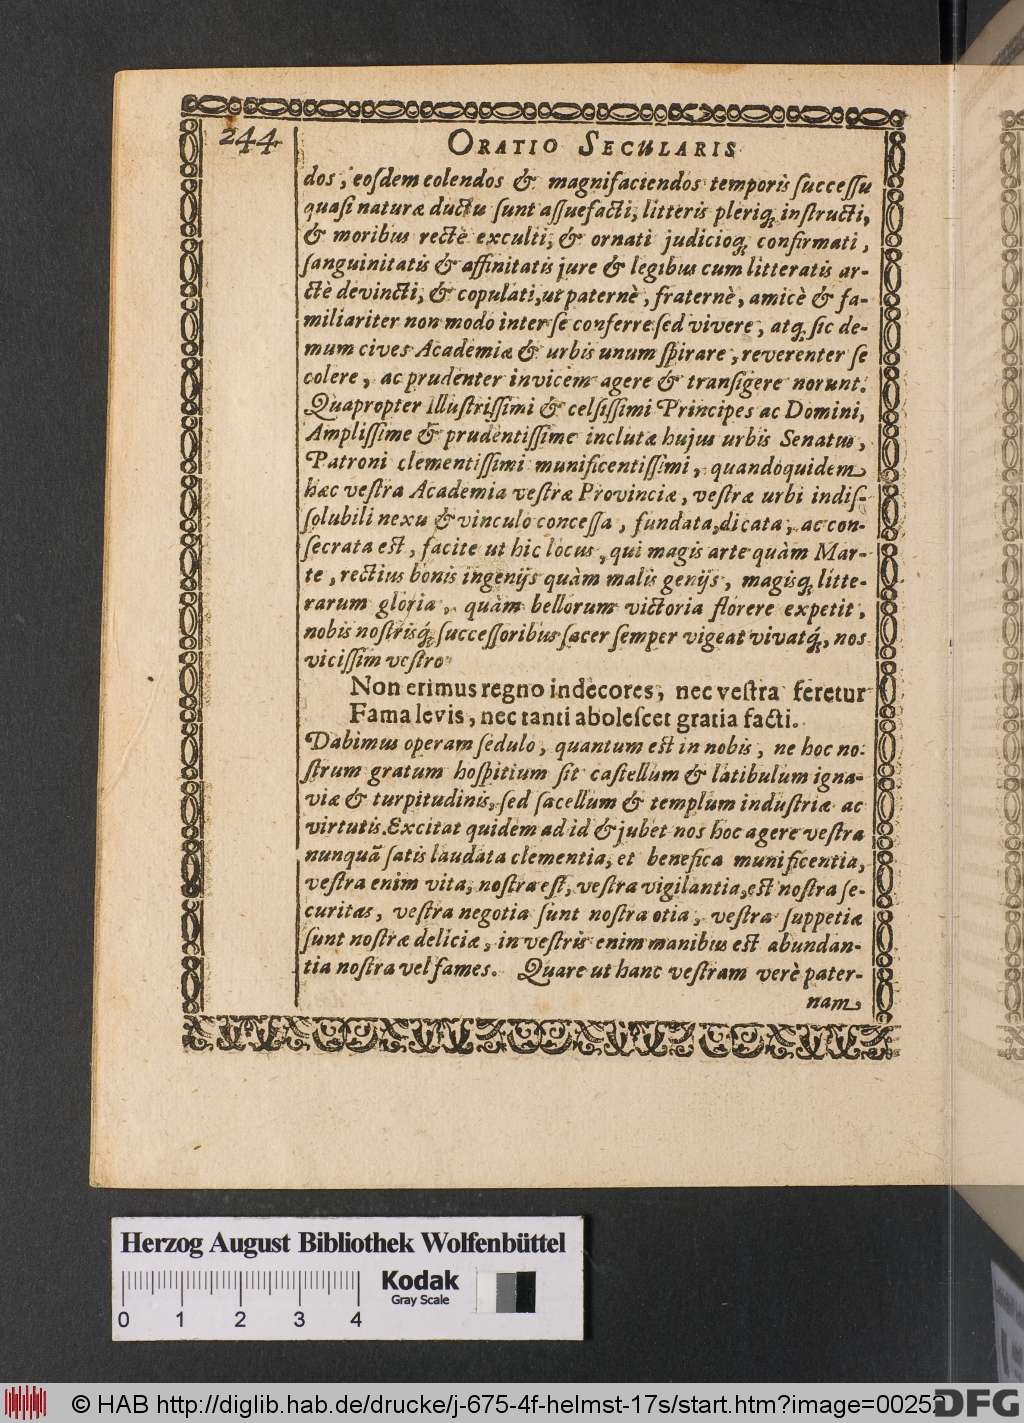 244
ORATIO SECULARIS
dos, eoſdem colendos & magnifaciendos temporis ſucceſſu
quaſi naturæ ductu ſunt aſſuefacti, litteris pleriq; inſtructi,
& moribus rectè exculti, & ornati judicioq; confirmati,
ſanguinitatis & affinitatis jure & legibus cum litteratis ar-
ctè devincti, & copulati, ut paternè, fraternè, amicè & fa-
miliariter non modo inter ſe conferre ſed vivere, atq; ſic de-
mum cives Academiæ & urbis unum ſpirare, reverenter ſe
colere, ac prudenter invicem agere & tranſigere norunt.
Quapropter Illuſtriſſimi & celſiſſimi Principes ac Domini,
Ampliſſime & prudentiſſime inclutæ hujus urbis Senatus,
Patroni clementiſſimi munificentiſſimi, quandoquidem
hæc veſtra Academia veſtræ Provinciæ, veſtræ urbi indiſ-
ſolubili nexu & vinculo conceſſa, fundata, dicata, ac con-
ſecrata eſt, facite ut hic locus, qui magis arte quàm Mar-
te, rectius bonis ingenijs quàm malis genijs, magisq; litte-
rarum gloria, quàm bellorum victoria florere expetit,
nobis noſtrisq́; ſucceſſoribus ſacer ſemper vigeat vivatq́;, nos
viciſſim veſtro
Non erimus regno indecores, nec veſtra feretur
Fama levis, nec tanti aboleſcet gratia facti.
Dabimus operam ſedulo, quantum eſt in nobis, ne hoc no-
ſtrum gratum hoſpitium ſit caſtellum & latibulum igna-
viæ & turpitudinis, ſed ſacellum & templum induſtriæ ac
virtutis. Excitat quidem ad id & jubet nos hoc agere veſtra
nunquã ſatis laudata clementia, et benefica munificentia,
veſtra enim vita, noſtra eſt, veſtra vigilantia, eſt noſtra ſe-
curitas, veſtra negotia ſunt noſtra otia, veſtra ſuppetiæ
ſunt noſtræ deliciæ, in veſtris enim manibus eſt abundan-
tia noſtra vel fames. Quare ut hanc veſtram verè pater-
nam
Herzog August Bibliothek Wolfenbüttel
Kodak
Gray Scale
0 1 2 3 4
© HAB http://diglib.hab.de/drucke/j-675-4f-helmst-17s/start.htm?image=00252
DFG